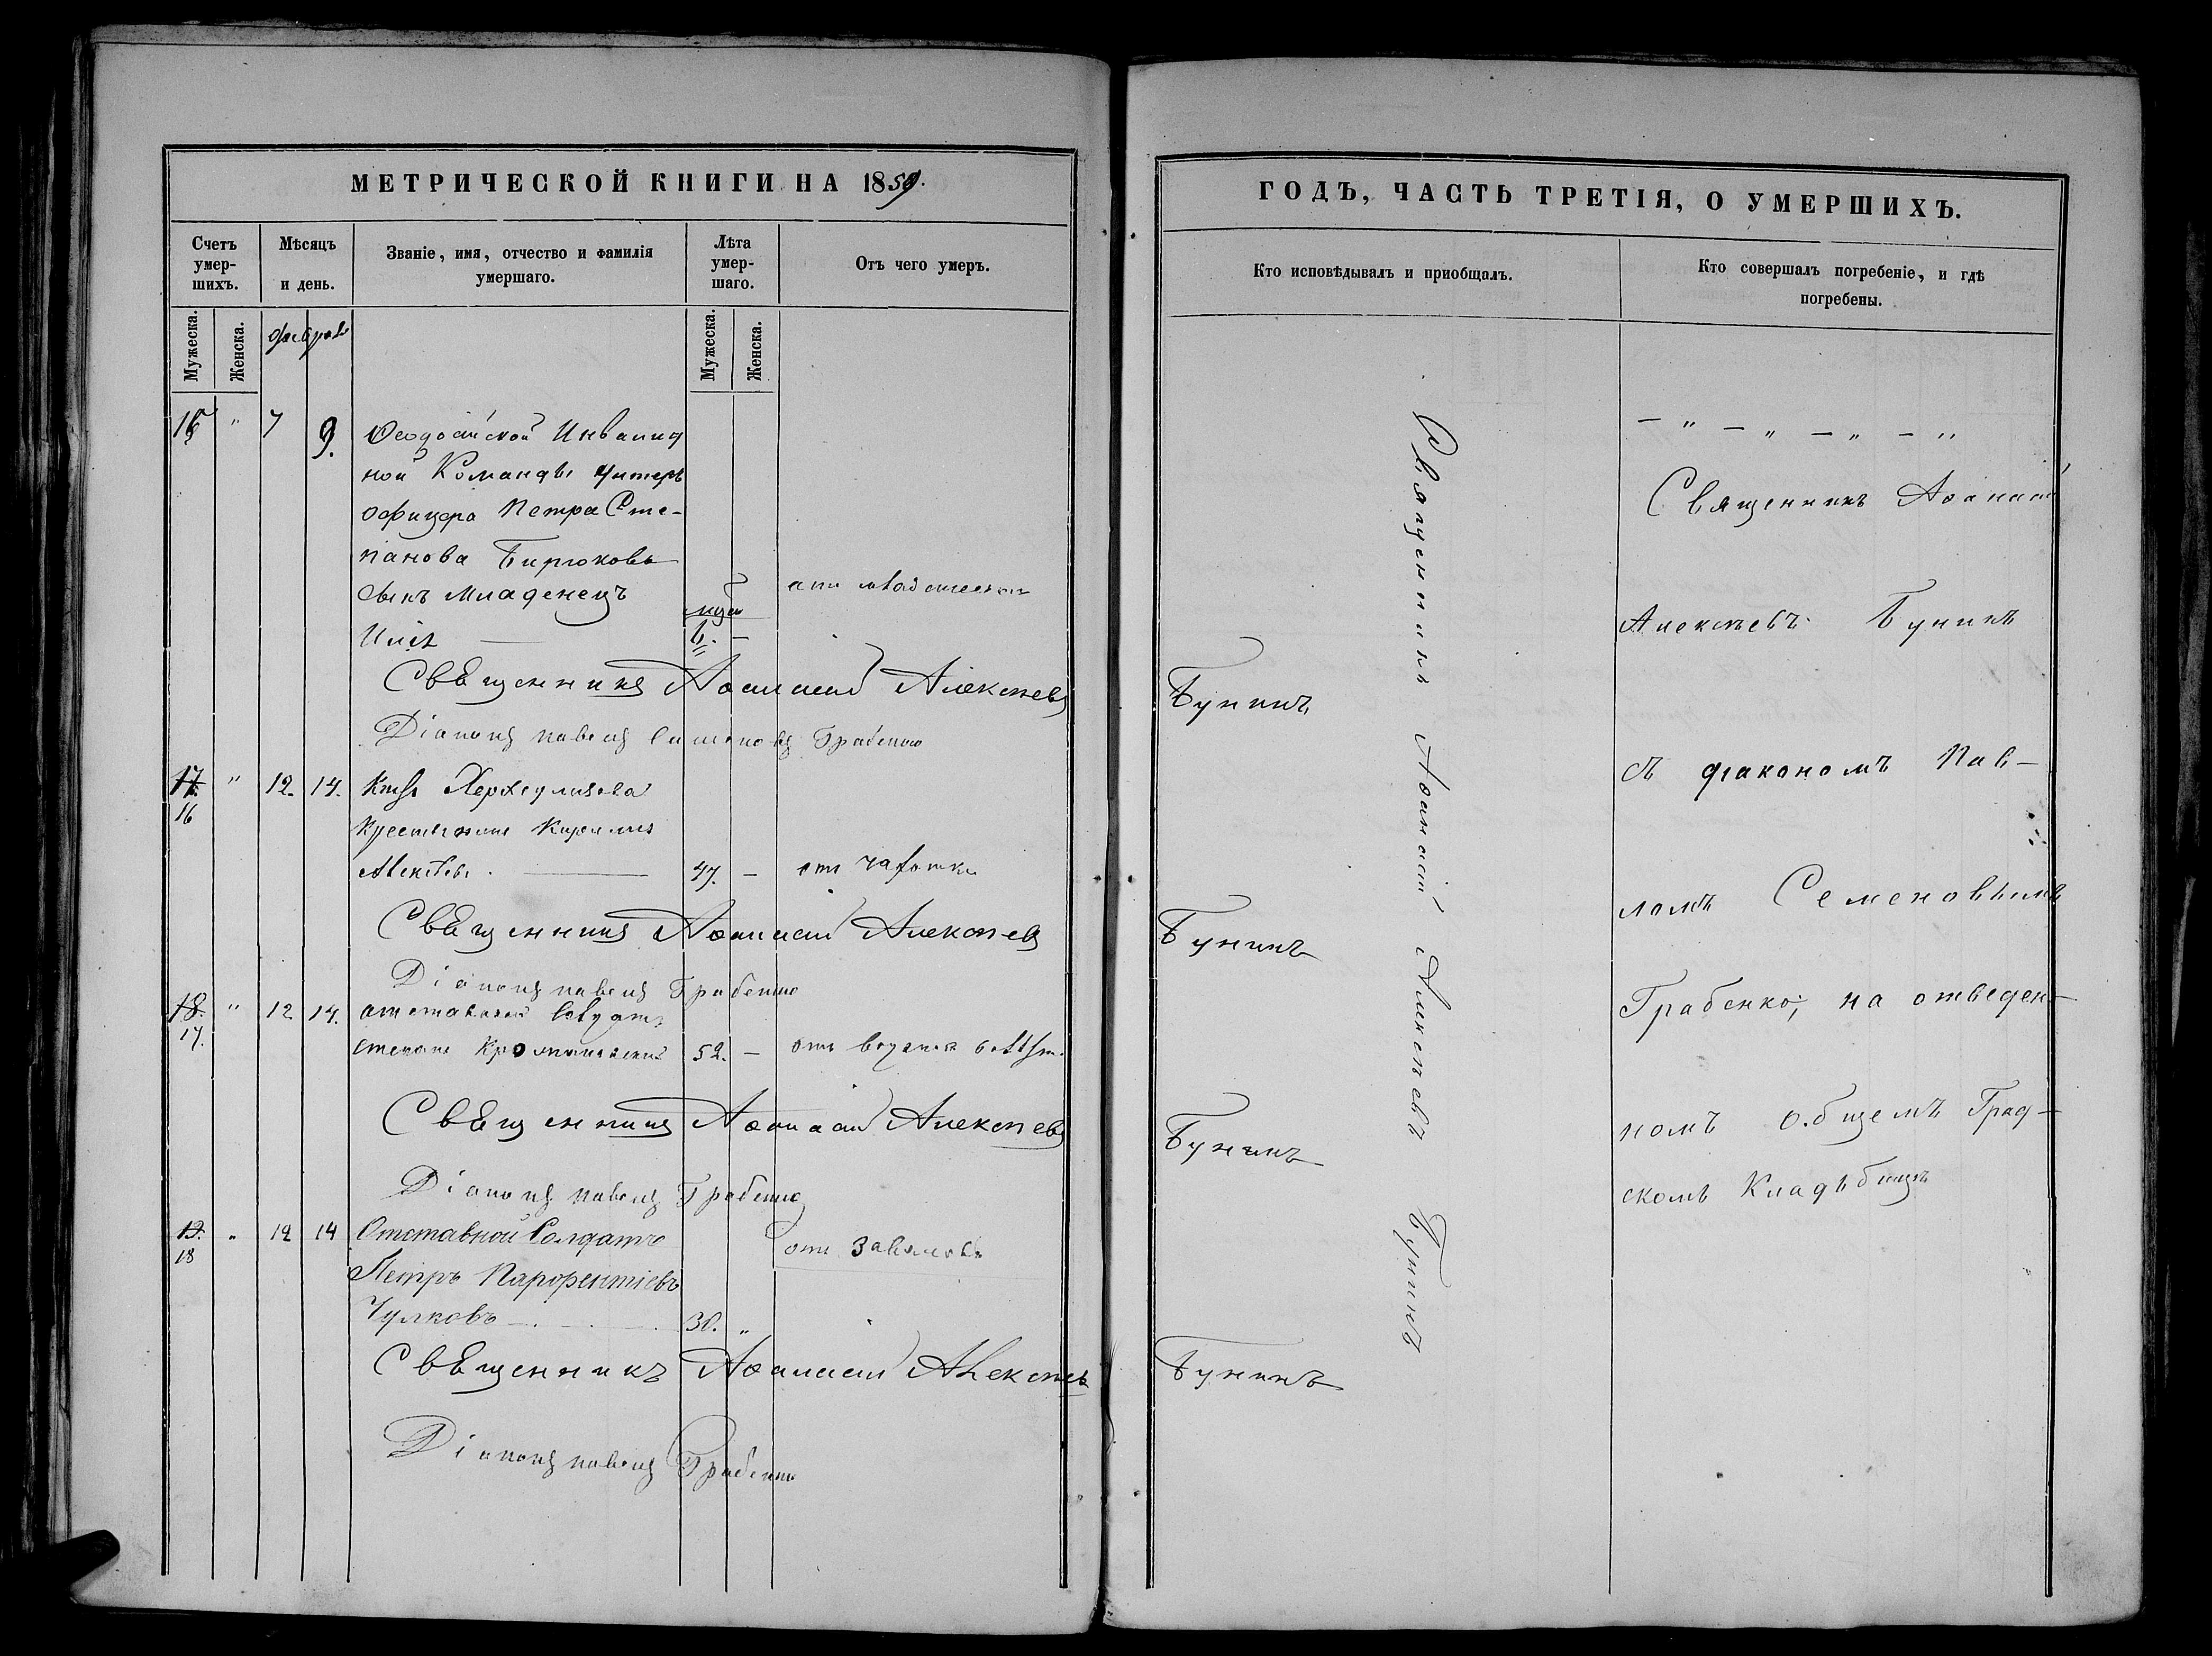 МЕТРИЧЕСКОЙ КНИГИ НА 1859.
Счетъ умер-шихъ.
Мѣсяцъ и день.
Званіе, имя, отчество и фамилія умершаго.
Лѣта умер-шаго.
Отъ чего умеръ.
Мужеска. Женска.
Мужеска. Женска.
15 " 7 9. Ѳеодосійской Инвалид
ной Команды Унтеръ
офицера Петра Сте-
панова Бирюкова
сынъ младенецъ
Илія — 6. —
Священникъ Аѳанасій Алексѣевъ
Діаконъ Павелъ Семеновъ Грабенко
17. " 12. 14.
16
крестьянинъ
47. — отъ чахотки
Священникъ Аѳанасій Алексѣевъ
Діаконъ Павелъ Грабенко
18. " 12 14. отставной
17. Степанъ 52. — отъ
Священникъ Аѳанасій Алексѣевъ
Діаконъ Павелъ Грабенко
19. " 12 14 Отставной Солдатъ
18 Петръ Парфентіевъ
Чулковъ 30. "
Священникъ Аѳанасій Алексѣевъ
Діаконъ Павелъ Грабенко
ГОДЪ, ЧАСТЬ ТРЕТІЯ, О УМЕРШИХЪ.
Кто исповѣдывалъ и приобщалъ.
Кто совершалъ погребеніе, и гдѣ
погребены.
Бунинъ
Бунинъ
Бунинъ
Бунинъ
Священникъ Аѳанасій Алексѣевъ Бунинъ
— " — " — " — "
Священникъ Аѳанасій
Алексѣевъ Бунинъ
съ діакономъ Пав-
ломъ Семеновымъ
Грабенко, на отведен-
номъ общемъ Град-
скомъ Кладбищѣ